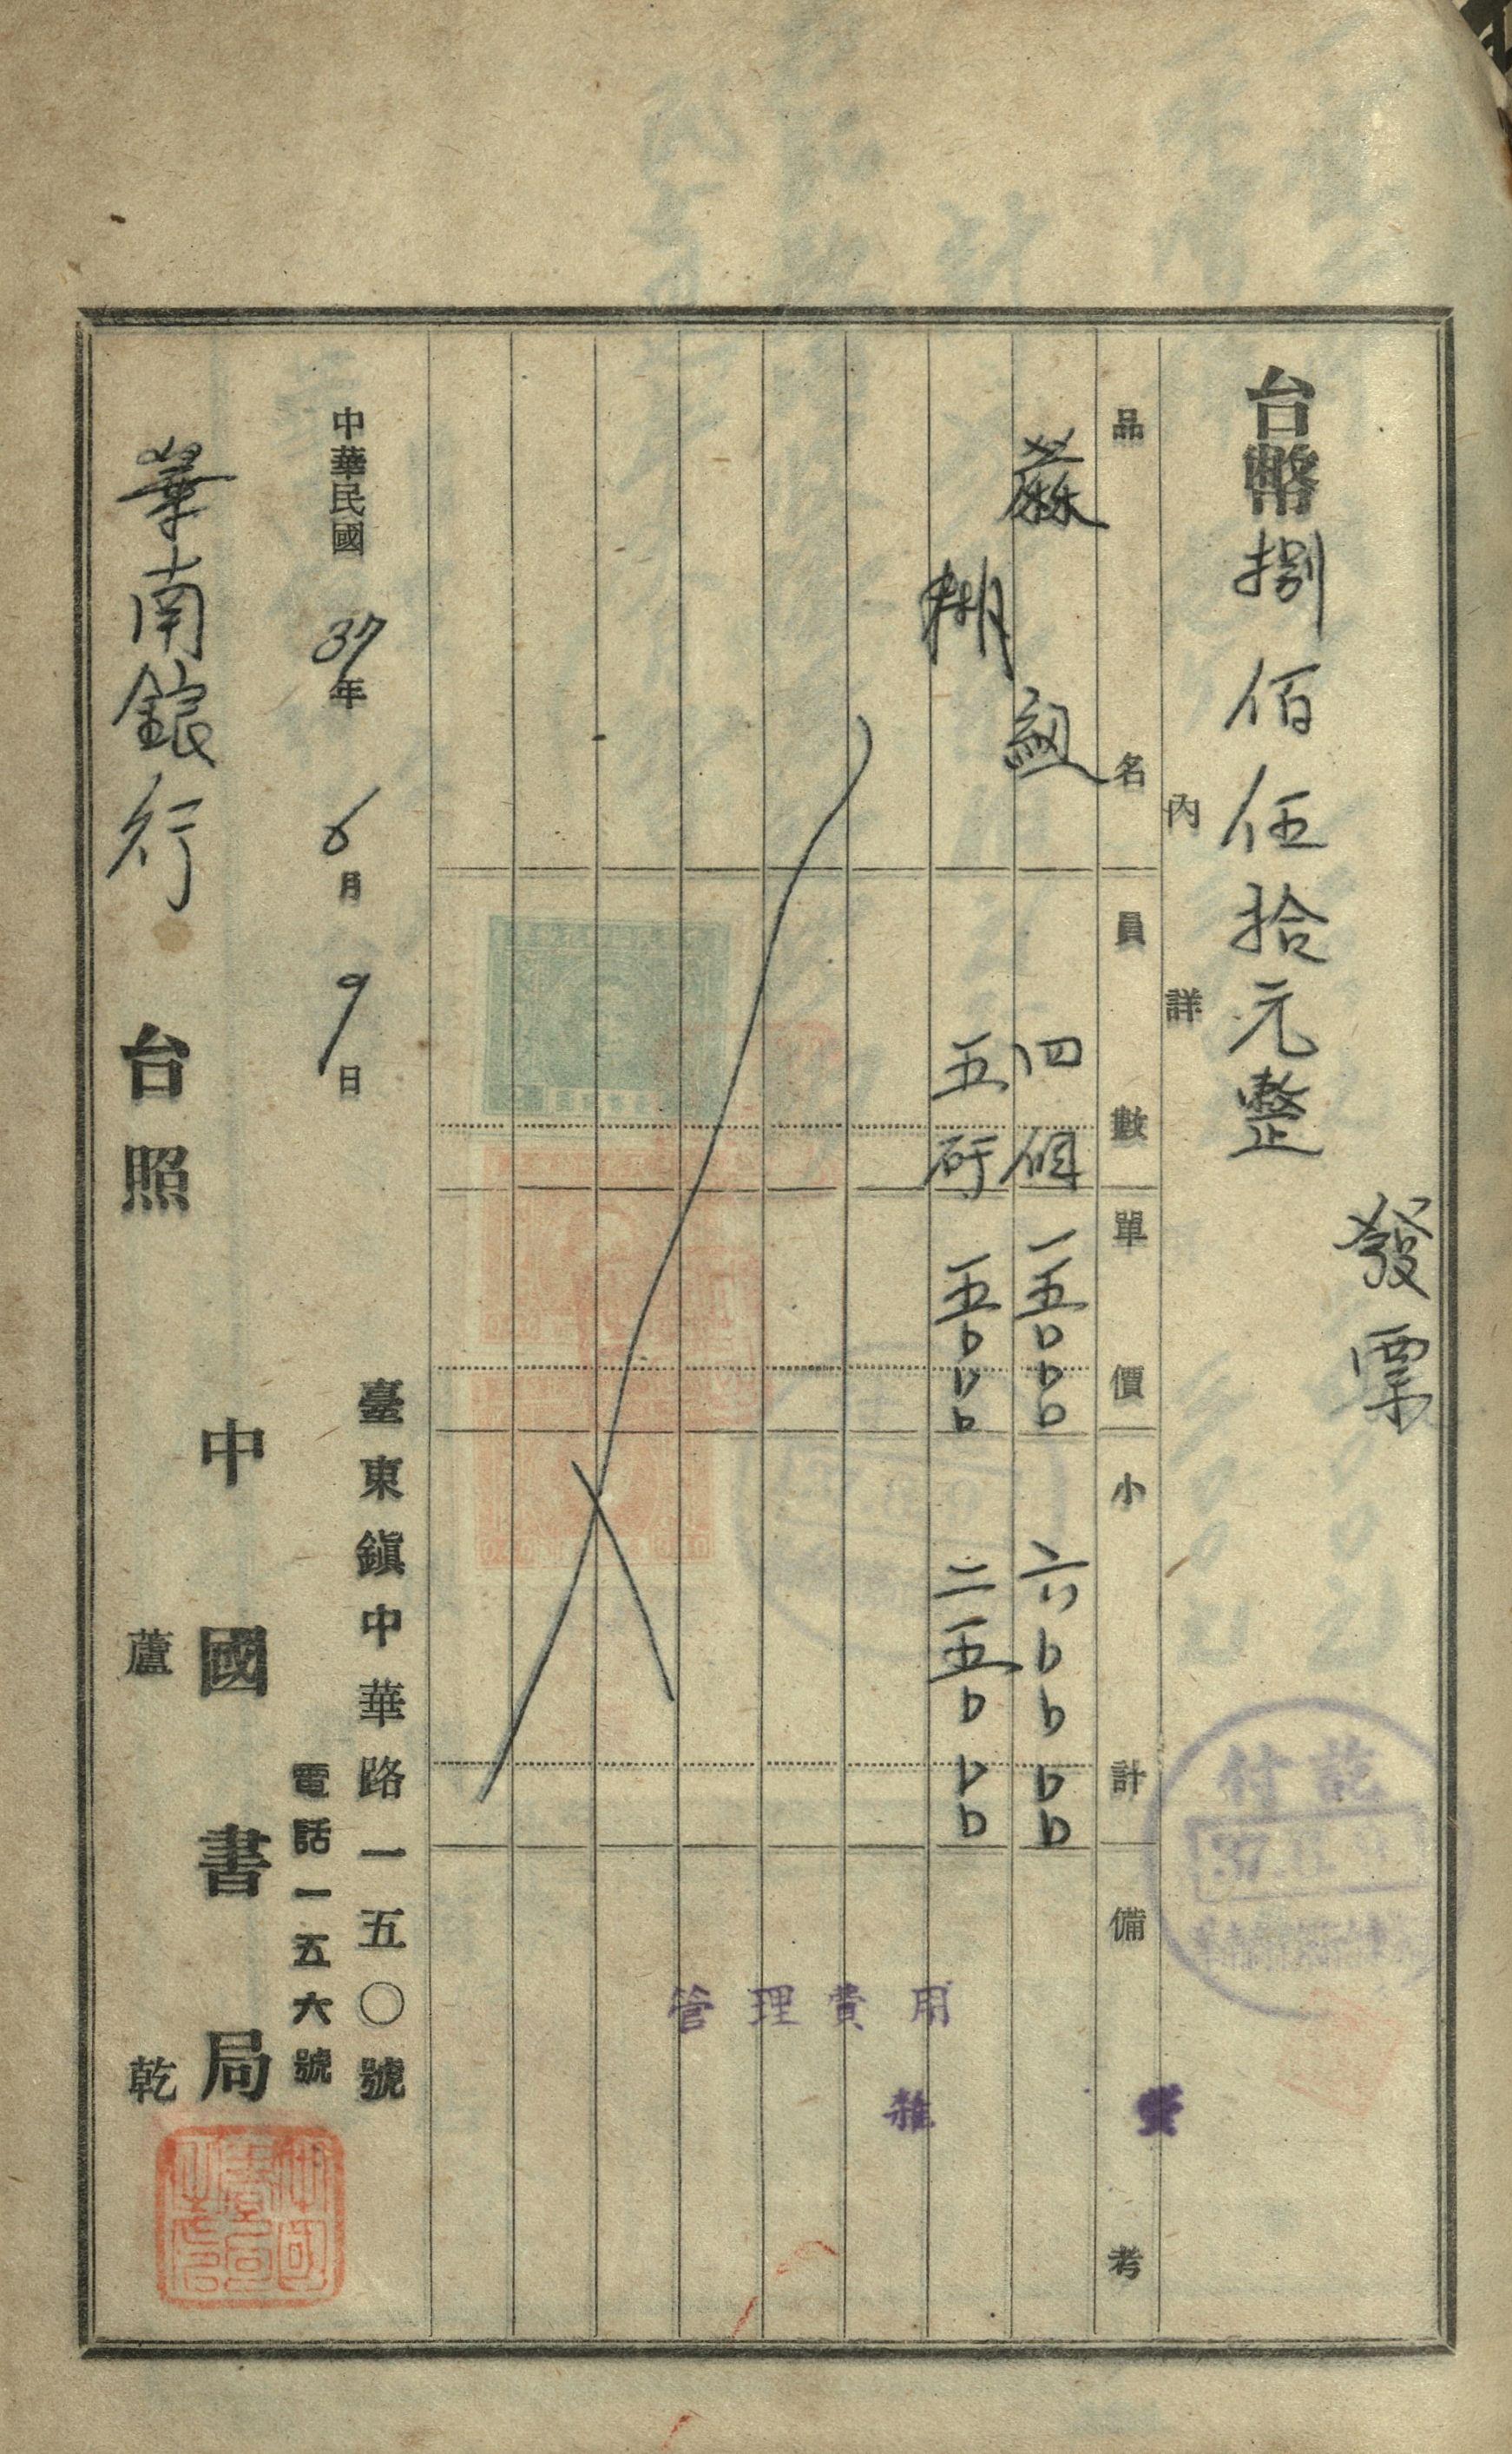 發票
台幣捌佰伍拾元整
內詳
品名 員數 單價 小計 備考
蔴 四個 一五〇〇〇 六〇〇〇〇
糊 五斤 五〇〇〇 二五〇〇〇
管理費用
雜
中華民國37年6月9日
臺東鎮中華路一五〇號
電話一五六號
中國書局
蘆乾
華南銀行 台照
付訖